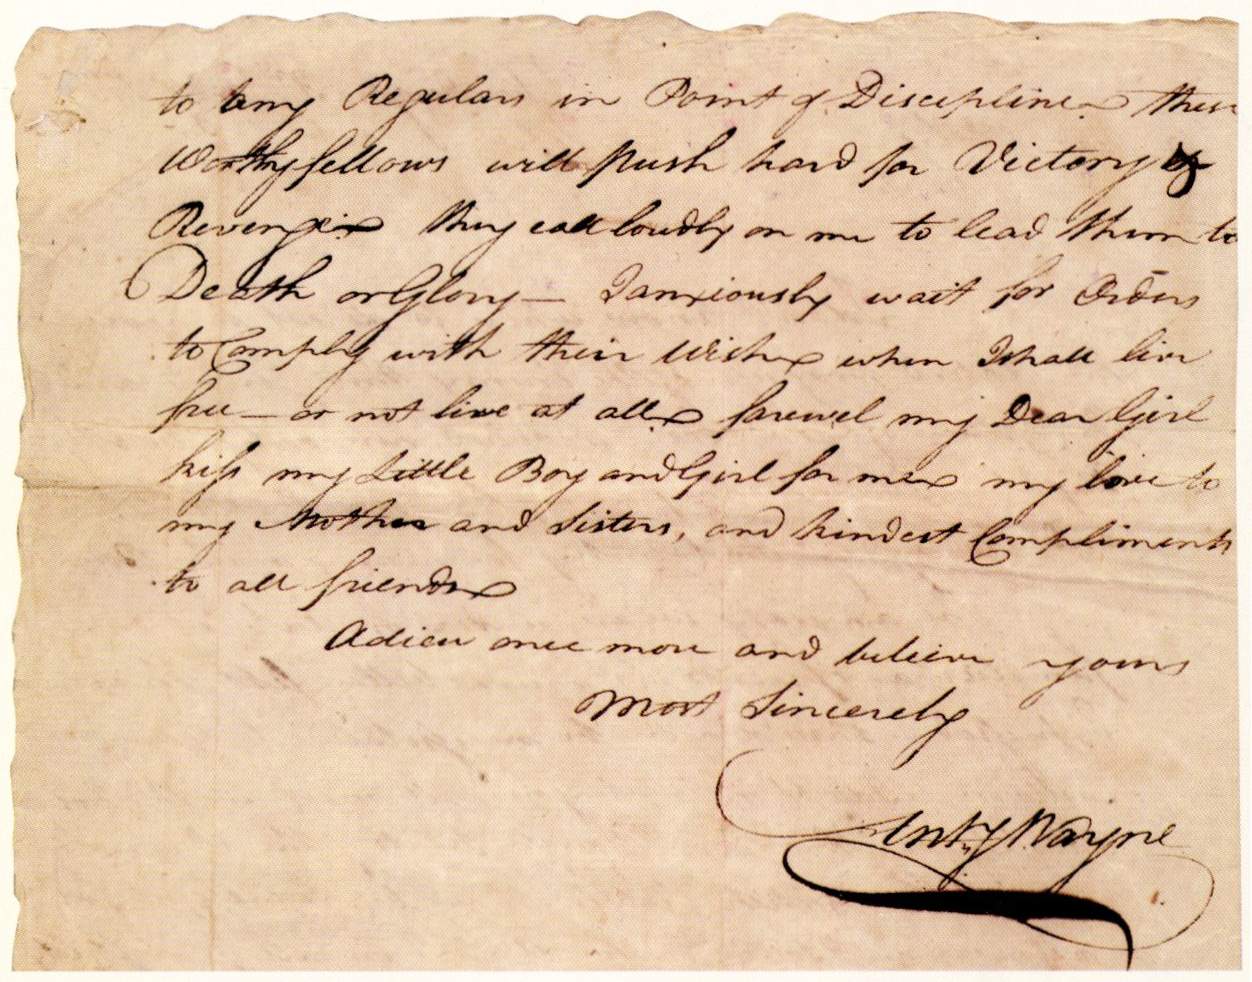 to any Regulars in Point of Discipline these
Worthy fellows will push hard for Victory &
Revenge they call loudly on me to lead them to
Death or Glory — I anxiously wait for Orders
to Comply with their Wishes when I shall live
free — or not live at all farewel my Dear Girl
kiss my Little Boy and Girl for me my love to
my Mother and Sisters, and kindest Compliments
to all friends
Adieu once more and believe yours
Most Sincerely
Anty Wayne